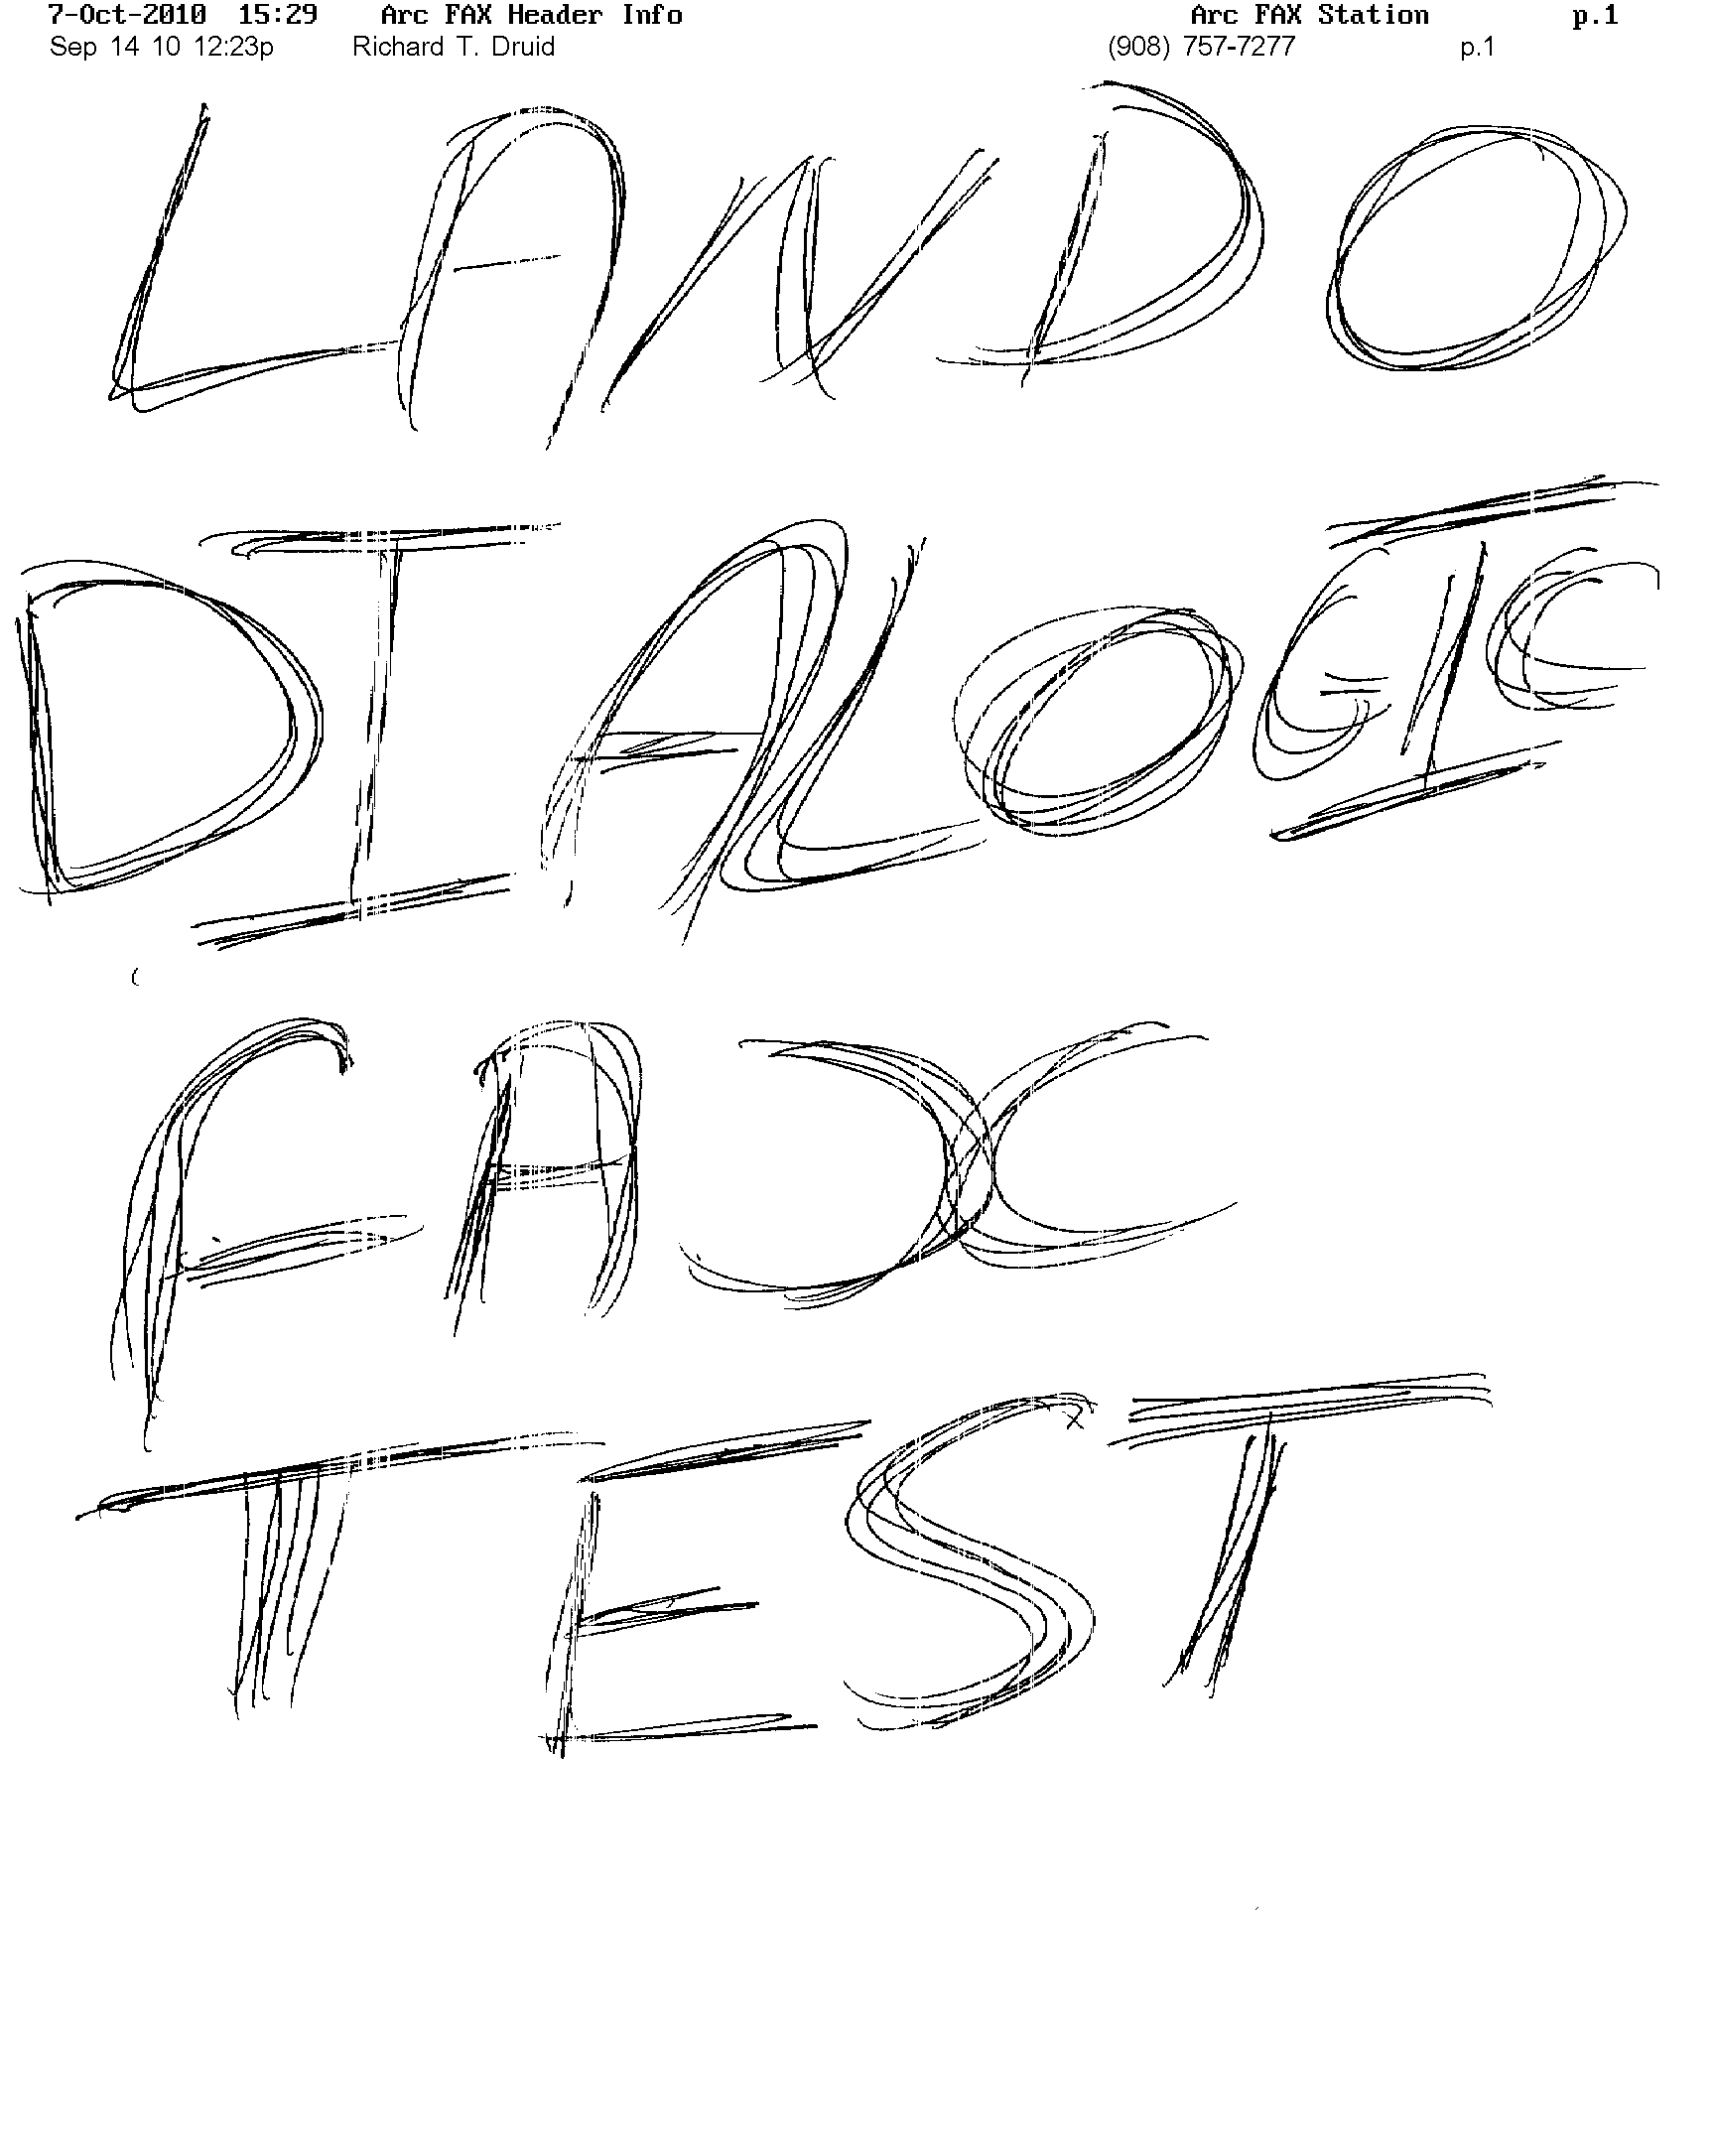 7-Oct-2010 15:29 Arc FAX Header Info Arc FAX Station p.1
Sep 14 10 12:23p Richard T. Druid (908) 757-7277 p.1
LANDO
DIALOGIC
FAX
TEST